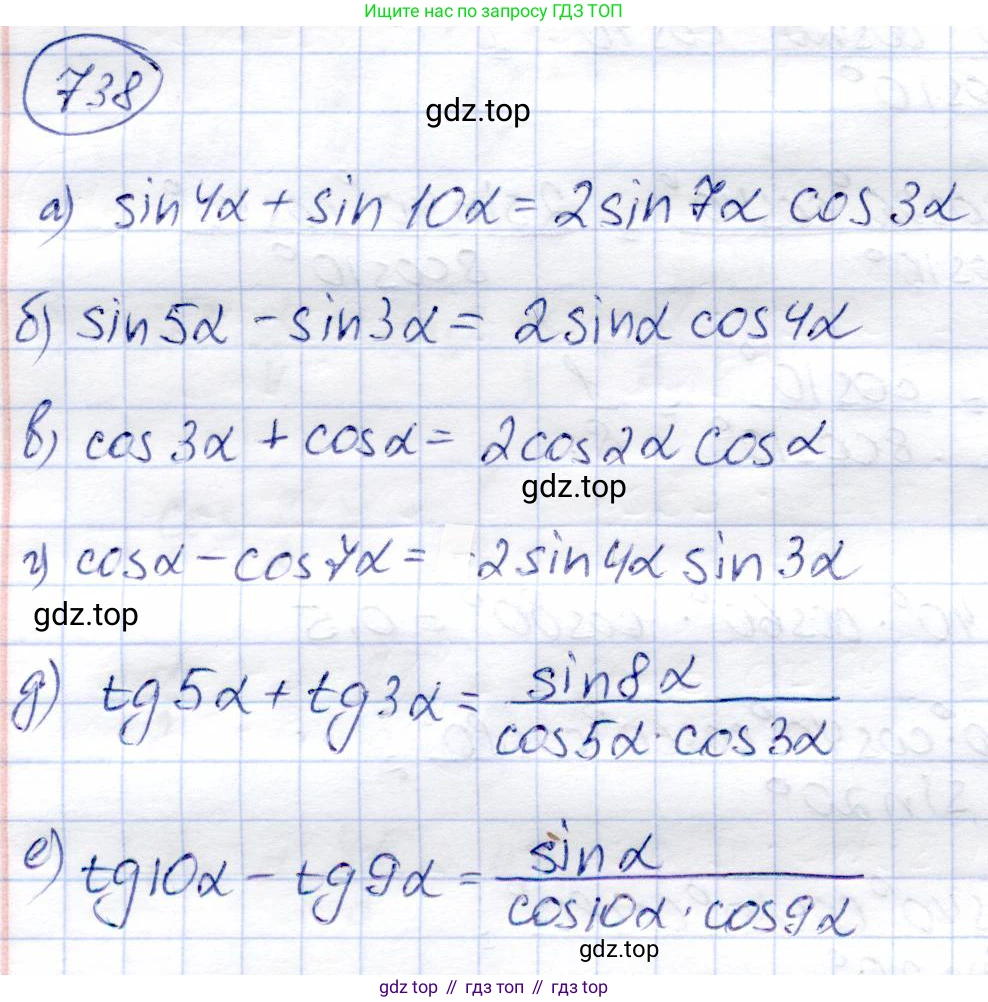 Ищите нас по запросу ГДЗ ТОП
738
gdz.top
а) sin 4α + sin 10α = 2 sin 7α cos 3α
б) sin 5α - sin 3α = 2 sin α cos 4α
в) cos 3α + cos α = 2 cos 2α cos α
gdz.top
г) cos α - cos 7α = 2 sin 4α sin 3α
gdz.top
д) tg 5α + tg 3α = sin 8α / cos 5α · cos 3α
е) tg 10α - tg 9α = sin α / cos 10α · cos 9α
gdz.top
gdz top // гдз топ // гдз top